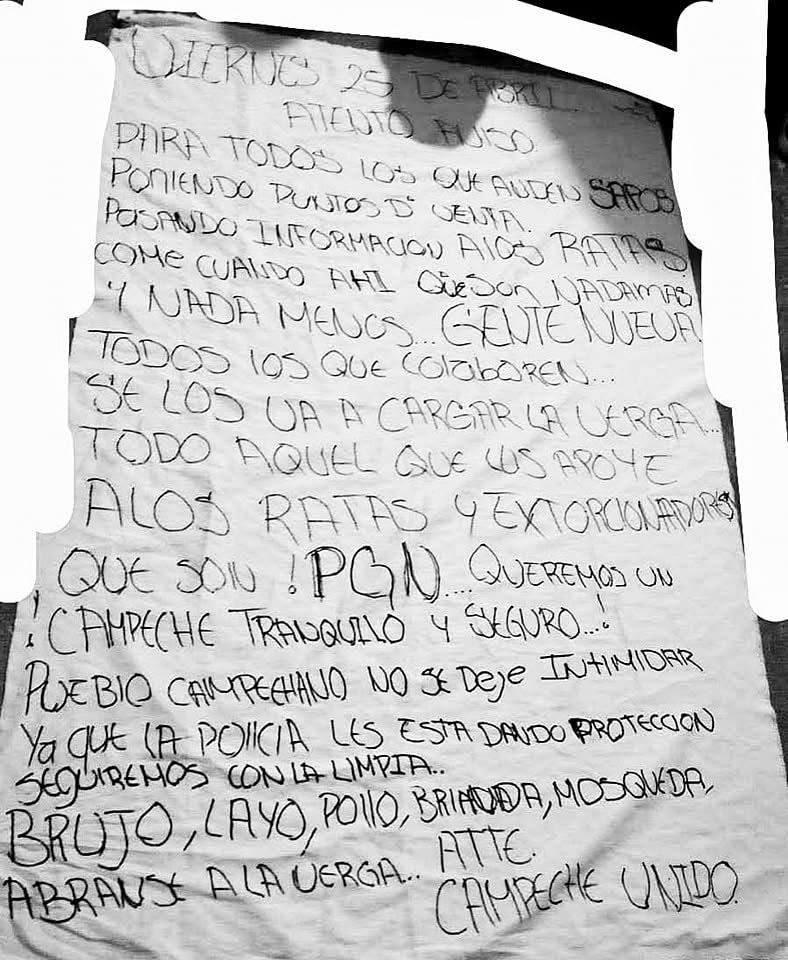 VIERNES 25 DE ABRIL
ATENTO AVISO
PARA TODOS LOS QUE ANDEN SAPOS.
PONIENDO PUNTOS D' VENTA.
PASANDO INFORMACION A lOS RATAS.
COME CUANDO AHI QUE SON NADAMAS
Y NADA MENOS... GENTE NUEVA.
TODOS lOS QUE COlaboREN...
SE LOS VA A CARGAR LA VERGA...
TODO AQUEL QUE LOS APOYE
A LOS RATAS Y EXTORCIONADORES
QUE SON ! PGN.... QUEREMOS UN
! CAMPECHE TRANQUILO Y SEGURO...!
PUEBlO CAMPECHANO NO SE Deje INtIMIDAR
Ya QUE LA POlICIA LES ESTA DANDO PROTECCION
SEGUIREMOS CON LA LIMPIA..
BRUJO, LAYO, POllO, BRIANDA, MOSQUEDA,
ABRANSE A LA VERGA.. ATTE.
CAMPECHE UNIDO.